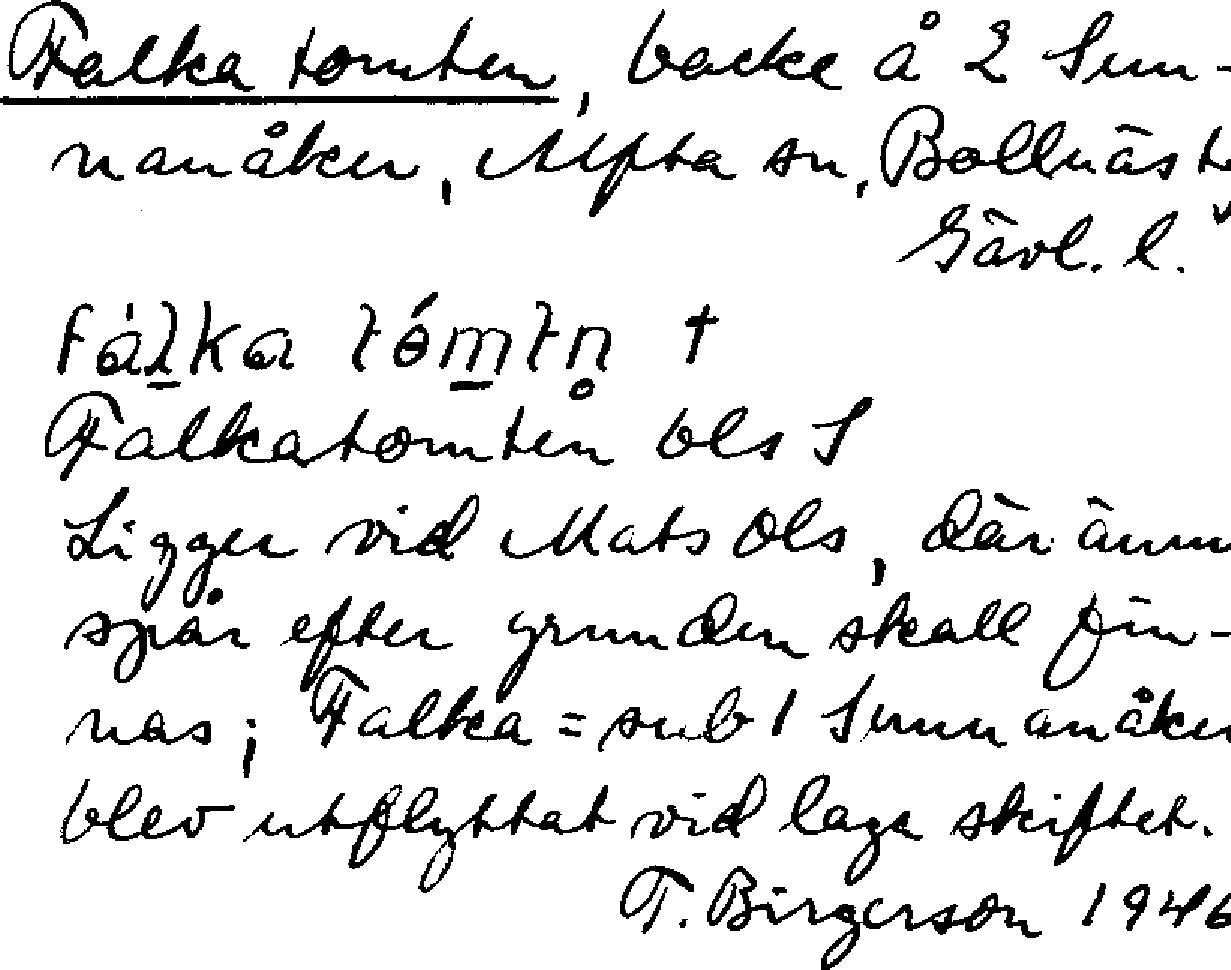 Falka tomten, backe å 2 Sun-
nanåker, Alfta sn, Bollnäs t
Gävl. l.
Falkatomten bls S
Ligger vid Mats Ols, där ännu
spår efter grunden skall fin-
nas; Falka = sub 1 Sunnanåker
blev utflyttat vid laga skiftet.
T. Birgerson 1946